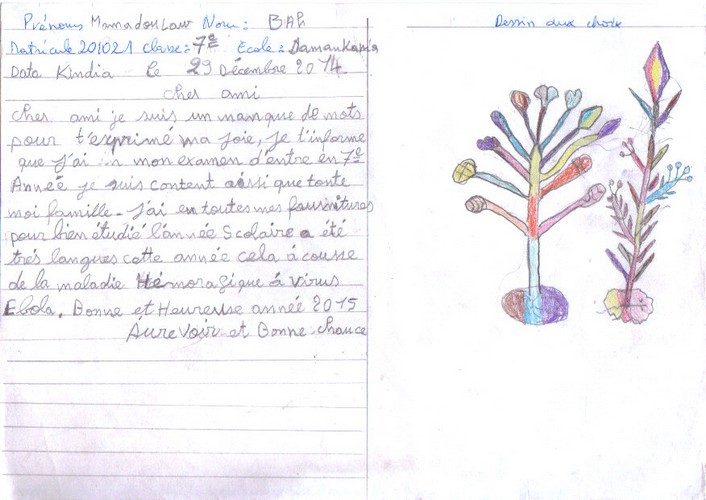 Prénoms Mamadou Law Nom: BAH
Matricule 201021 Classe: 7e Ecole: Damankania
Data Kindia le 29 Décembre 2014
Cher ami
Cher ami je suis un manque de mots
pour t'exprimé ma joie, je t'informe
que j'ai un mon examen d'entre en 7e
Année je suis content aussi que toute
moi famille. J'ai eu toutes mes fournitures
pour bien étudié l'année Scolaire a été
très langues cette année cela à cause
de la maladie Hémoragique à virus
Ebola. Bonne et Heureuse année 2015
Aure Voir et Bonne chance
Dessin aux choix